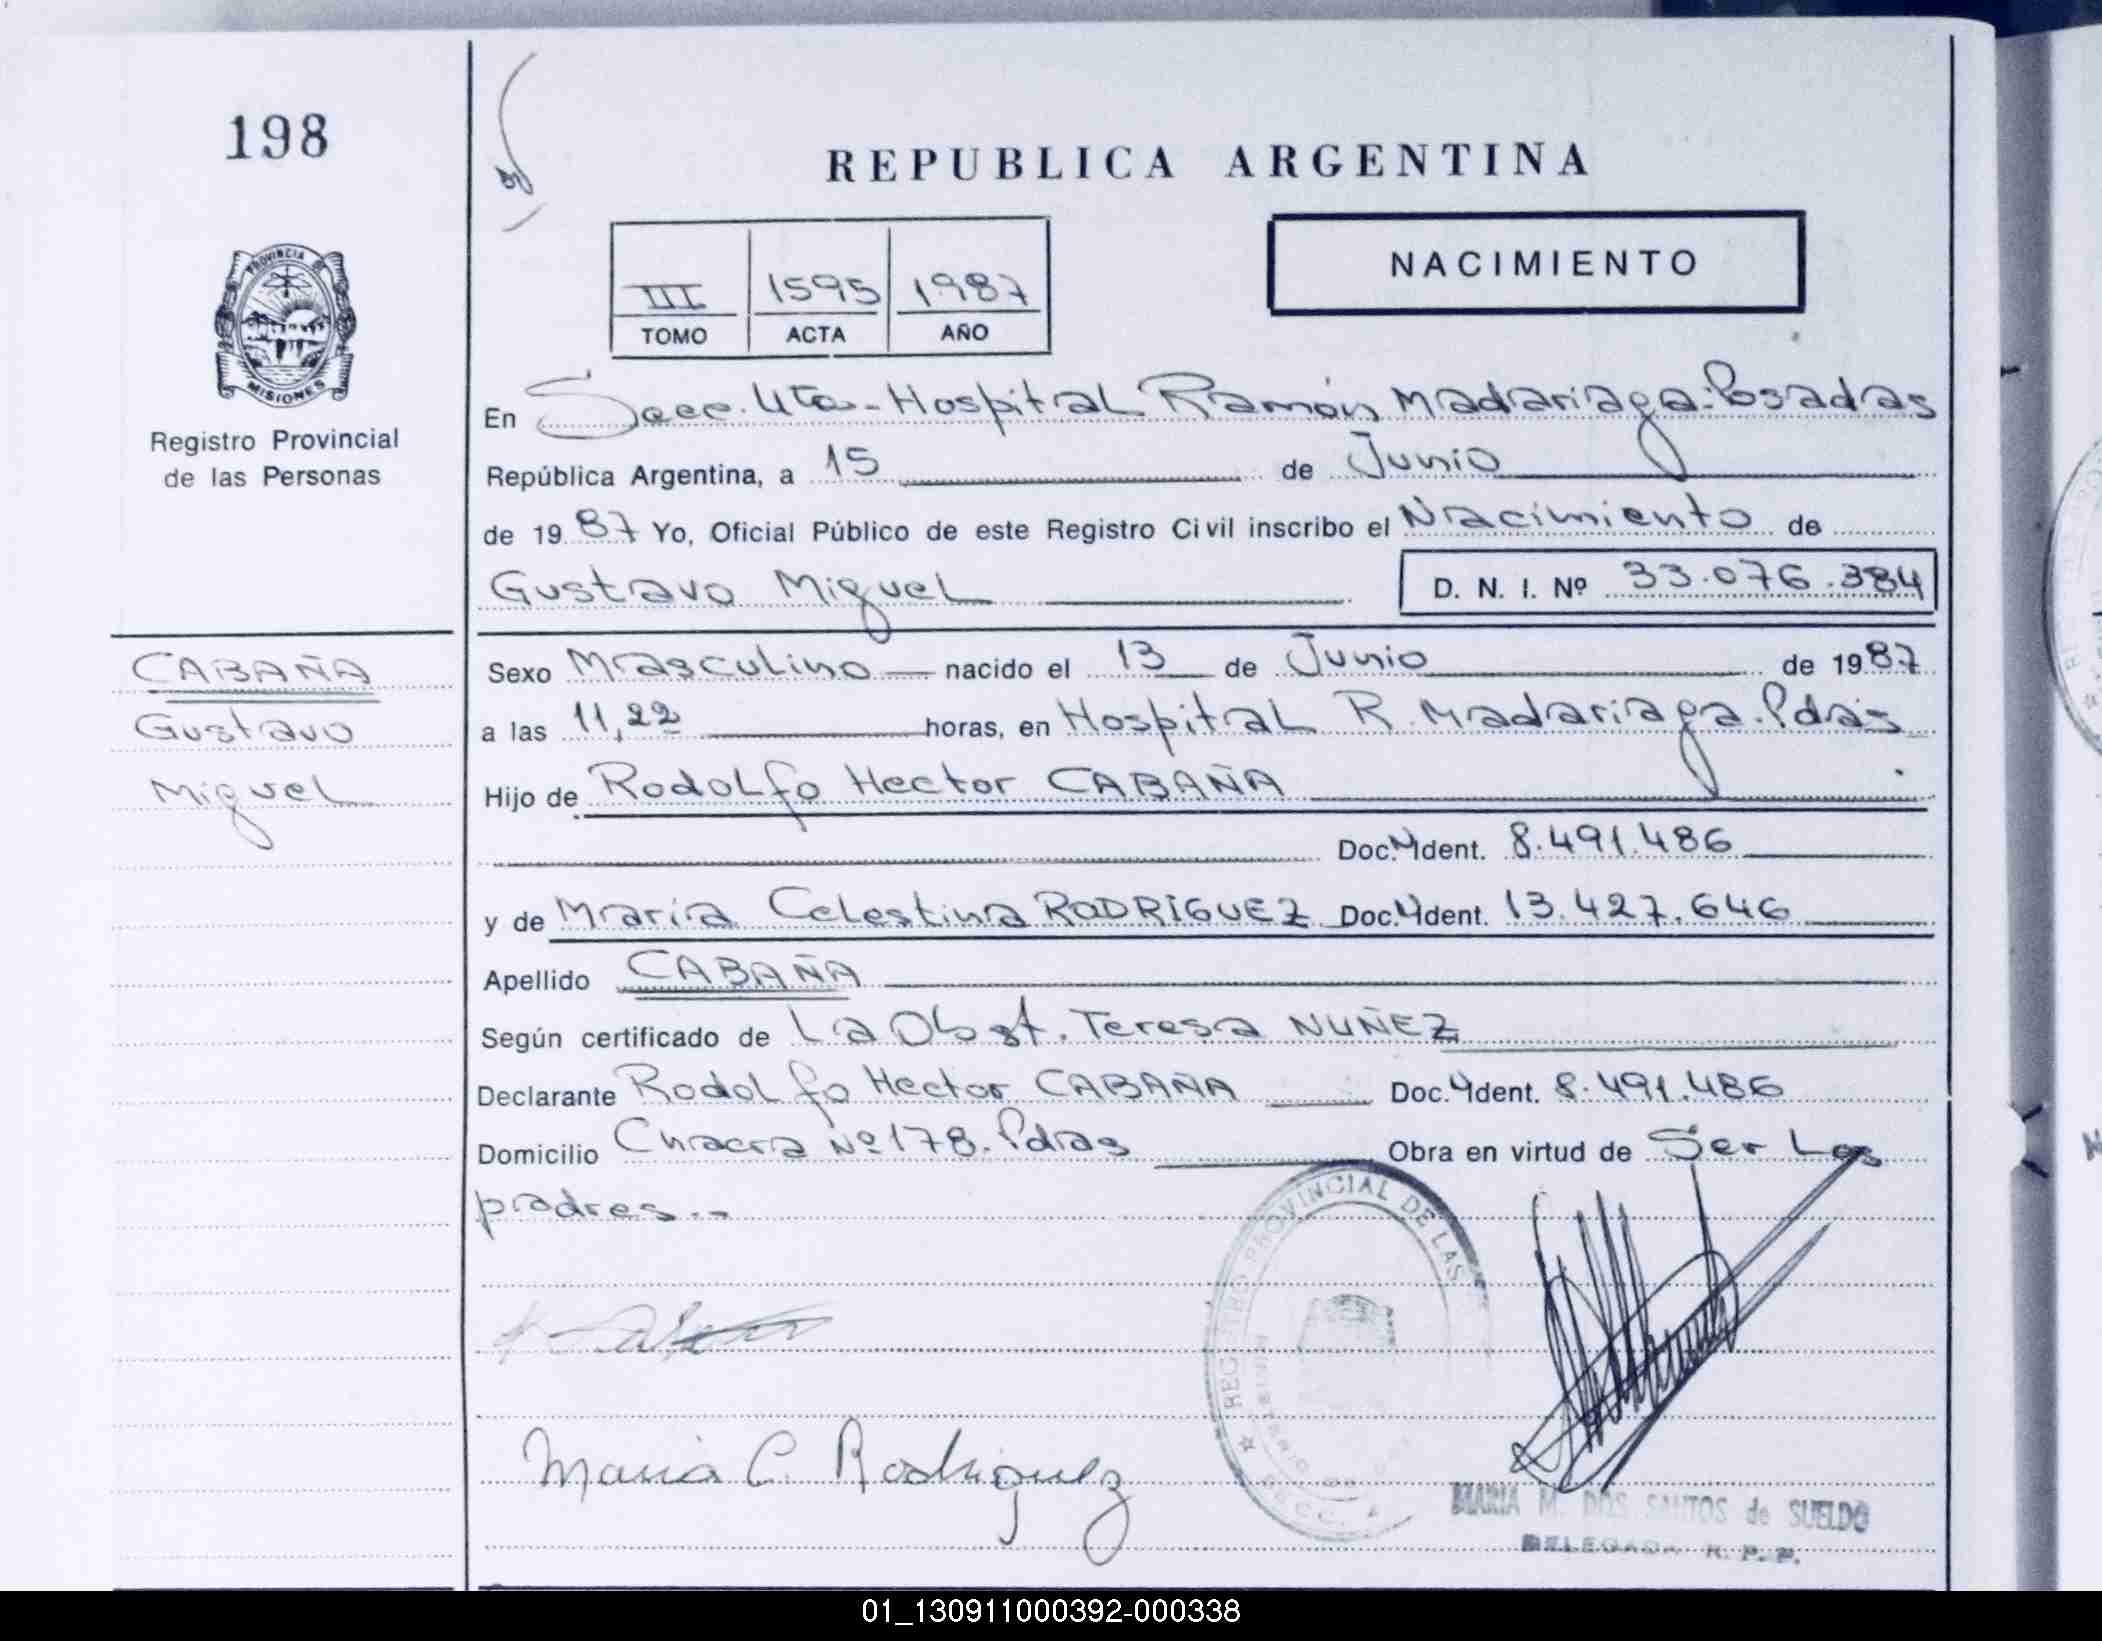 198
PROVINCIA DE
MISIONES
Registro Provincial
de las Personas
CABAÑA
Gustavo
Miguel
REPUBLICA ARGENTINA
III 1595 1987
TOMO ACTA AÑO
NACIMIENTO
En Secc. 4ta - Hospital Ramón Madariaga - Posadas
República Argentina, a 15 de Junio
de 1987 Yo, Oficial Público de este Registro Civil inscribo el Nacimiento de
Gustavo Miguel D. N. I. Nº 33.076.384
Sexo Masculino nacido el 13 de Junio de 1987
a las 11,22 horas, en Hospital R. Madariaga. Pdas
Hijo de Rodolfo Hector CABAÑA
Doc. Ident. 8.491.486
y de María Celestina RODRIGUEZ Doc. Ident. 13.427.646
Apellido CABAÑA
Según certificado de La Obst. Teresa NUÑEZ
Declarante Rodolfo Hector CABAÑA Doc. Ident. 8.491.486
Domicilio Chacra Nº 178. Pdas Obra en virtud de Ser Los
padres.-
REGISTRO PROVINCIAL DE LAS
Maria C. Rodriguez
MARIA M. DOS SANTOS de SUELDO
DELEGADA R. P. P.
01_130911000392-000338